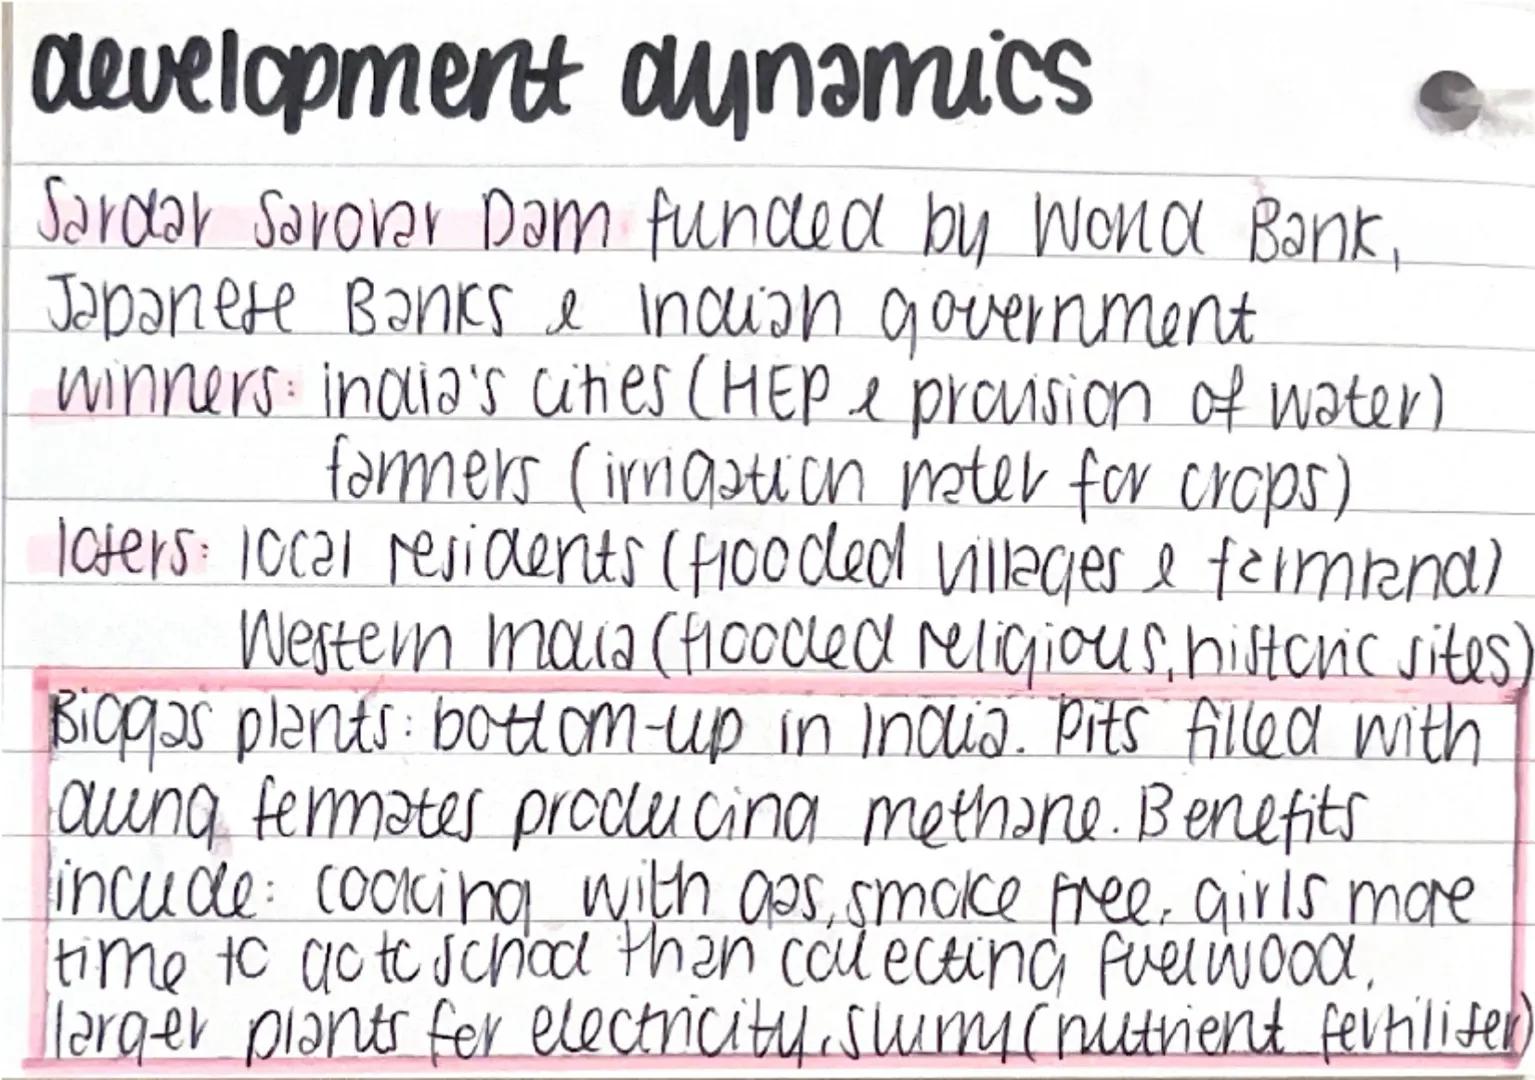 development dynamics
Sardar Sarovar Dam funded by World Bank,
Japanese Banks & indian government
winners: india's cities (HEP & provision of water)
farmers (irrigation water for crops)
losers: local residents (flooded villages & farmland)
Western India (flooded religious, historic sites)
Biogas plants: bottom-up in India. Pits filled with
dung fermates producing methane. Benefits
incude: cooking with gas, smoke free, girls more
time to go to school than collecting fuelwood,
larger plants for electricity, slurry (nutrient fertiliser)